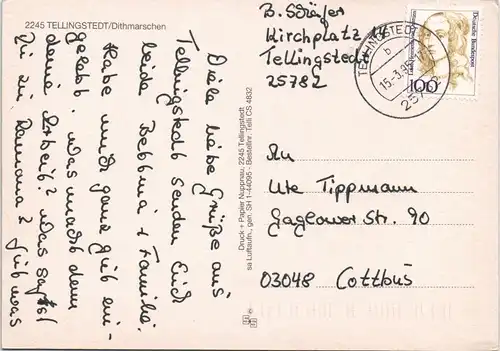 2245 TELLINGSTEDT/Dithmarschen
Viele liebe Grüße aus
Tellingstedt senden Euch
beide Bettina + Familie.
Habe mich ganz gut ein-
gelebt. Was macht denn
deine Arbeit? Was sagst
Du zu Ramona? Gib was
Druck + Papier Nuppnau, 2245 Tellingstedt
sa Luftaufn., gen. SH 1-44095 - Bestellnr. Telli CS 4832
B. Schäfer
Kirchplatz 14
Tellingstedt
25782
TELLINGSTEDT
b
15.-3.95
Deutsche Bundespost
100
An
Ute Tippmann
Gaglower Str. 90
03048 Cottbus